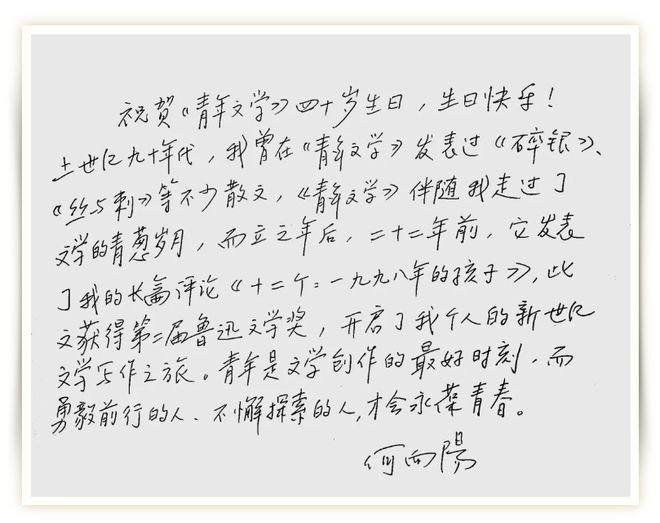 祝賀《青年文学》四十岁生日，生日快乐！
上世纪九十年代，我曾在《青年文学》发表过《碎银》、
《丝与刺》等不少散文，《青年文学》伴随我走过了
文学的青葱岁月，而立之年后，二十二年前，它发表
了我的长篇评论《十二个：一九九八年的孩子》，此
文获得第二届鲁迅文学奖，开启了我个人的新世纪
文学写作之旅。青年是文学创作的最好时刻，而
勇毅前行的人、不懈探索的人，才会永葆青春。
何向陽